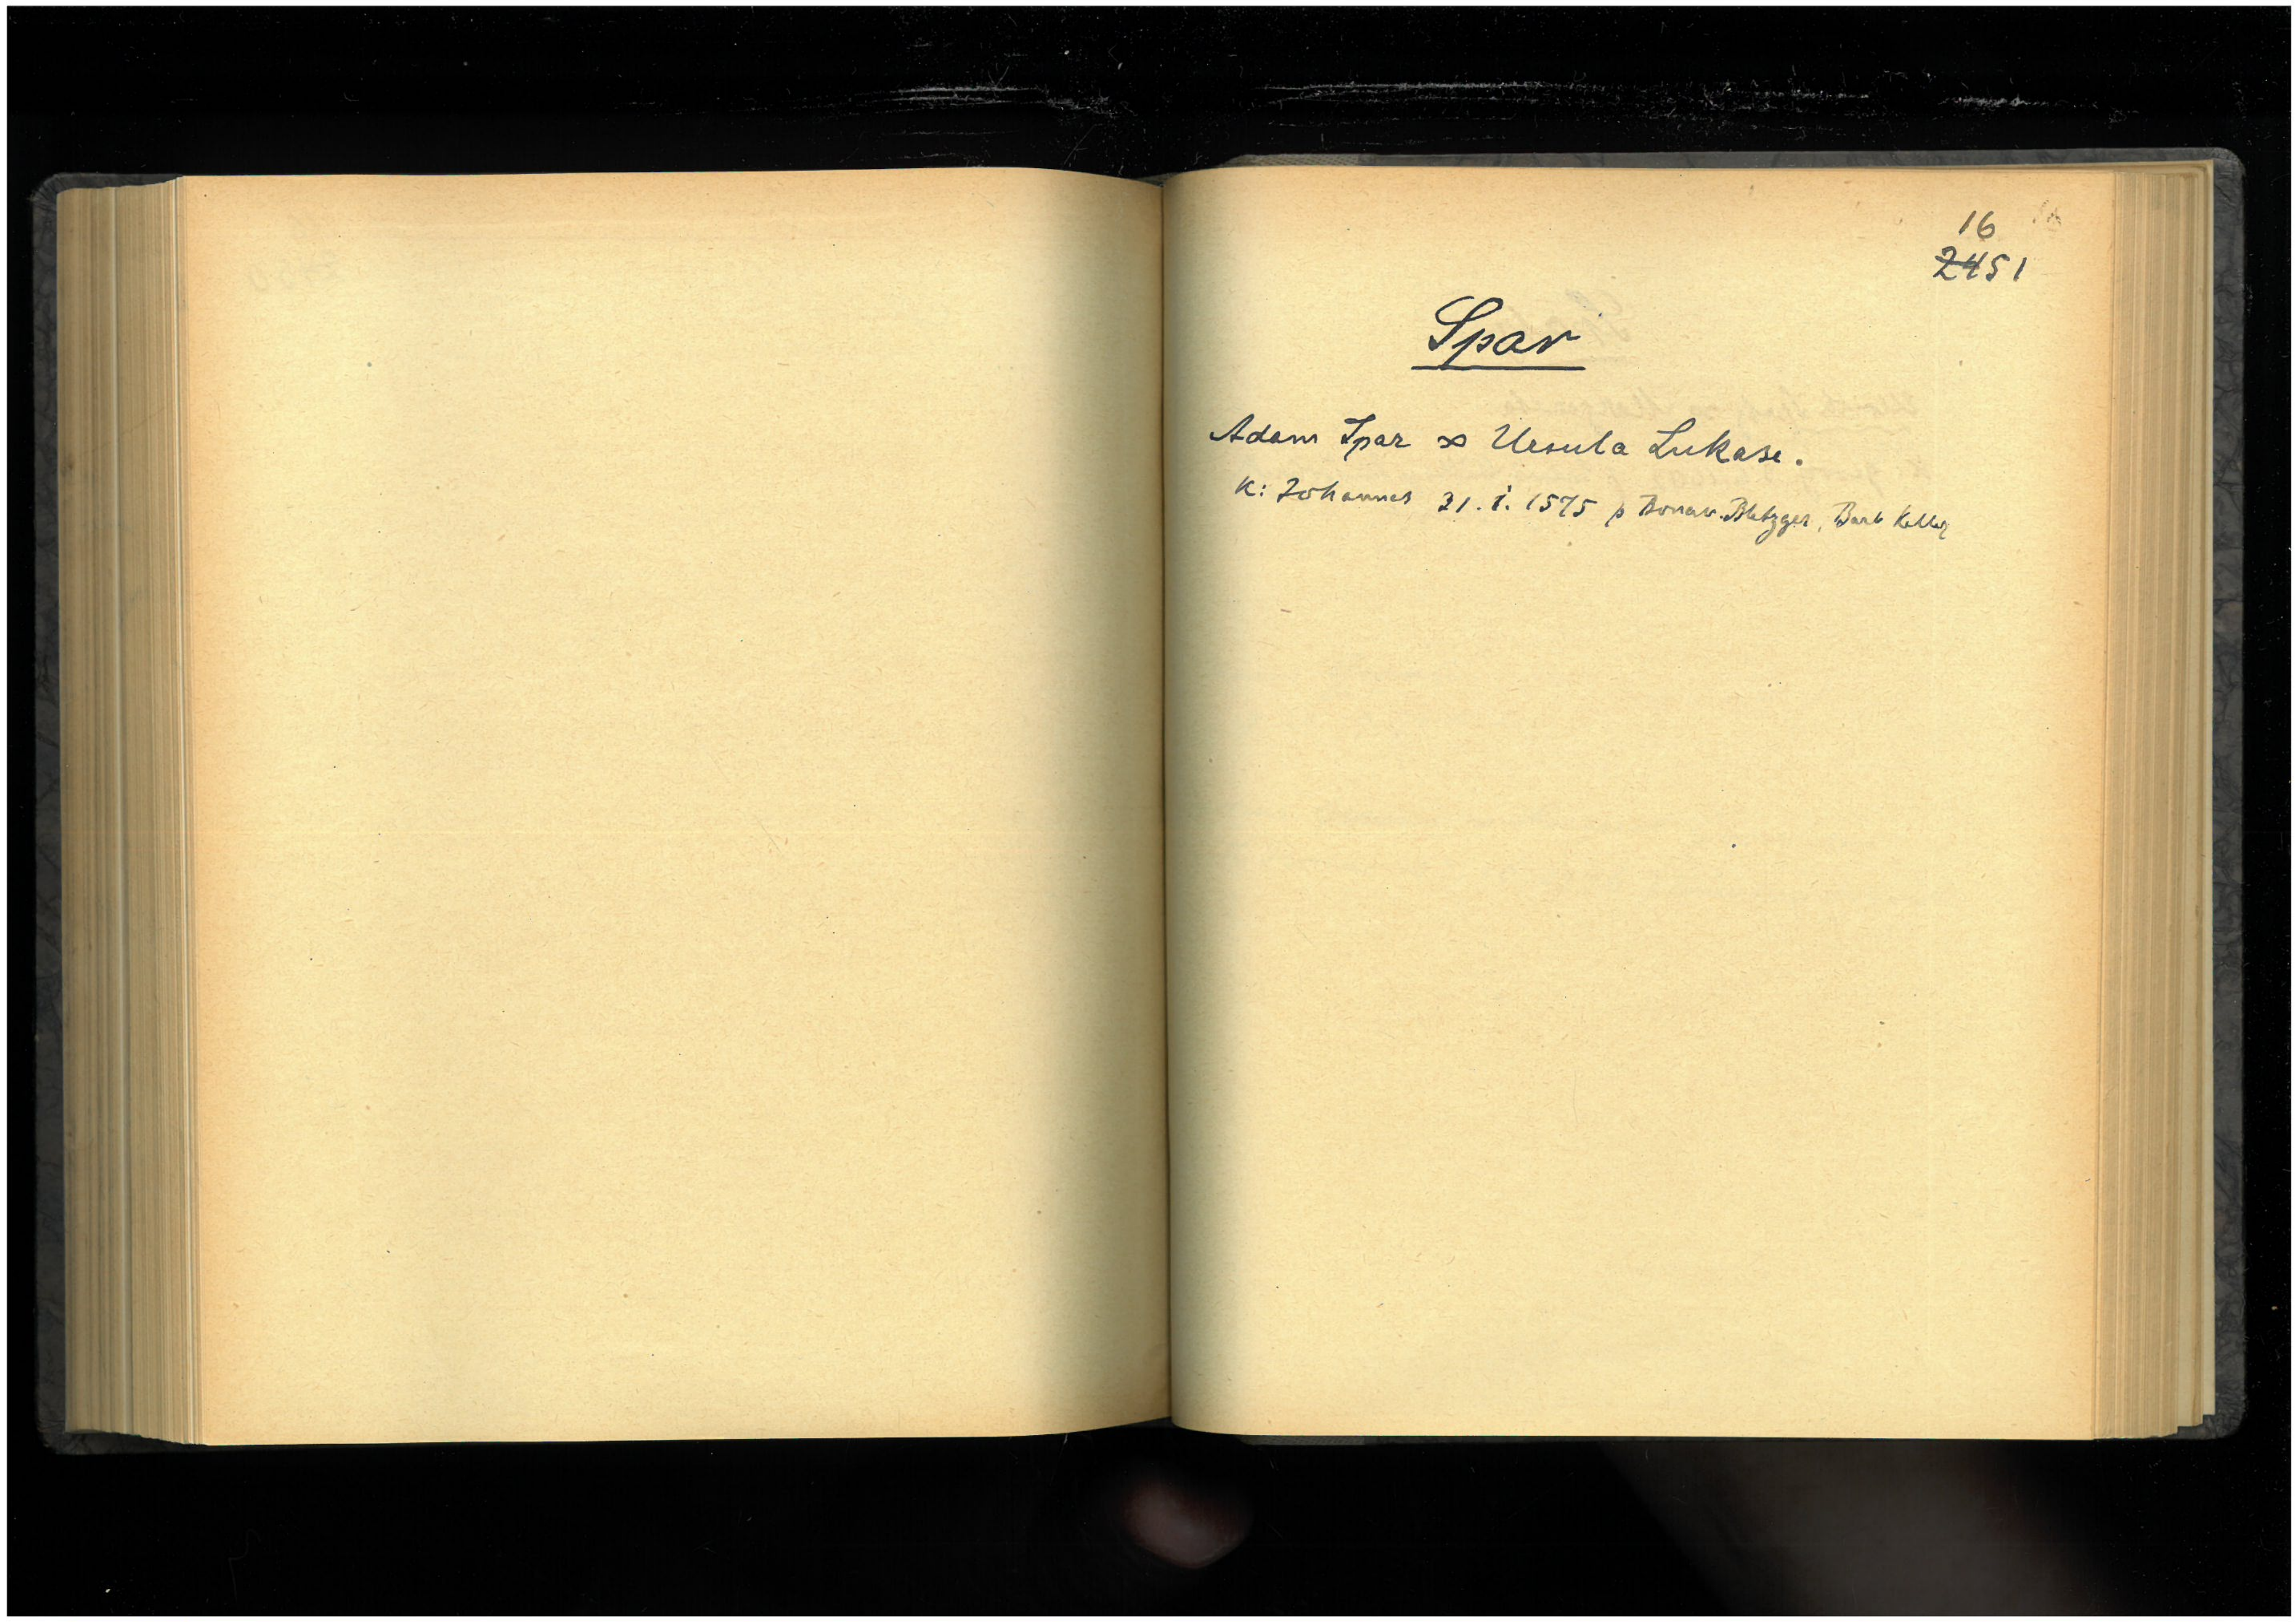 16
2451
Spar
Adam Spar ∞ Ursula Lukase.
K: Johannes 31. i. 1575 p Bonav. Bletzger, Barb Keller